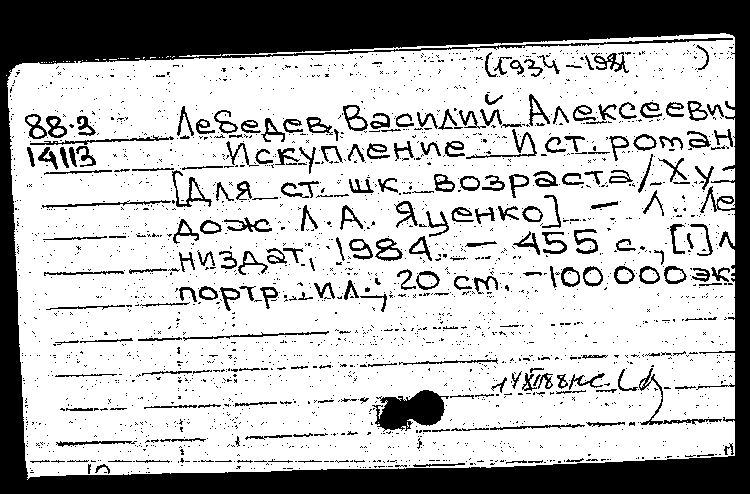 (1934-1981 )
88.3 Лебедев, Василий Алексеевич
14113 Искупление : Ист. роман
[Для ст. шк. возраста / Ху-
дож. Л. А. Яценко] - Л. : Ле
низдат, 1984. - 455 с., [1] л
портр. : ил.; 20 ст. - 100 000 экз